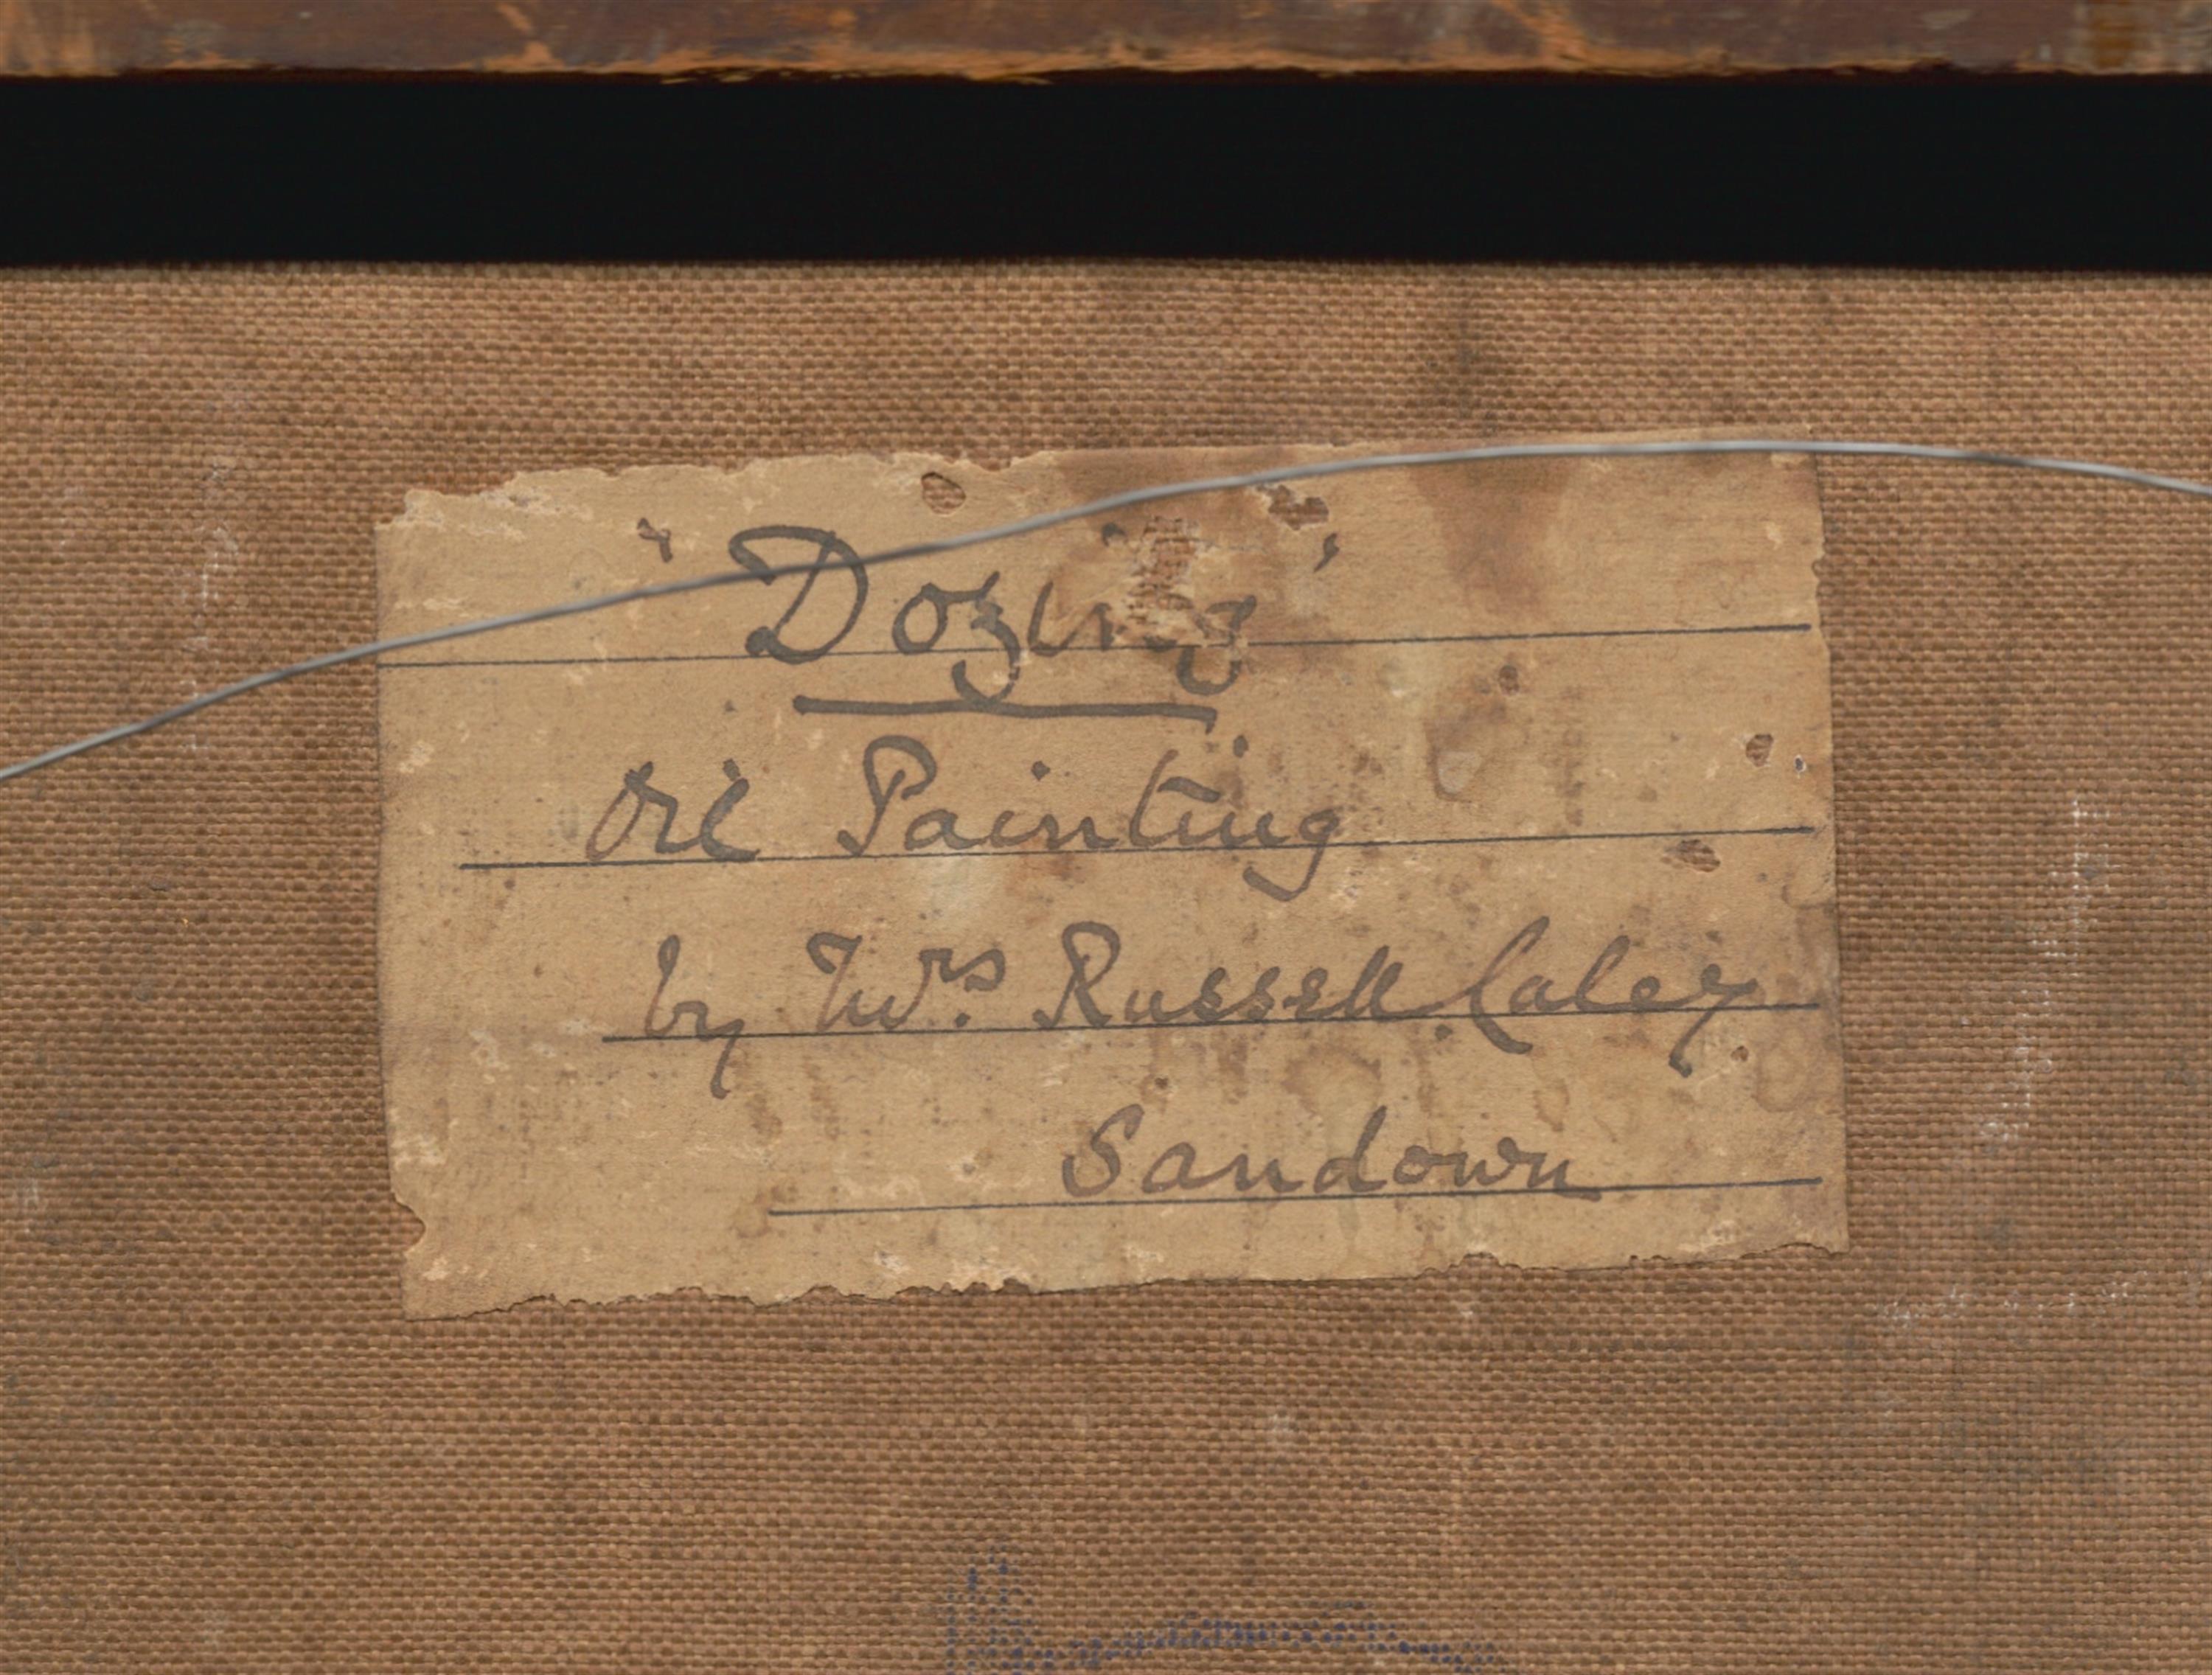 "Dozing"
Oil Painting
by Mrs. Russell Caley
Sandown